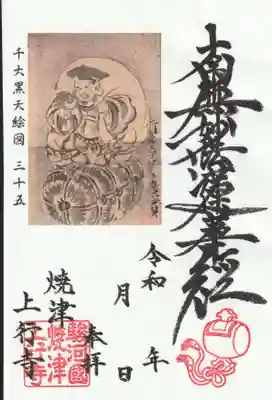 南無妙法蓮華経
令和 年
月 日
奉拝
焼津
上行寺
千大黒天絵図 三十五
駿河國
焼津